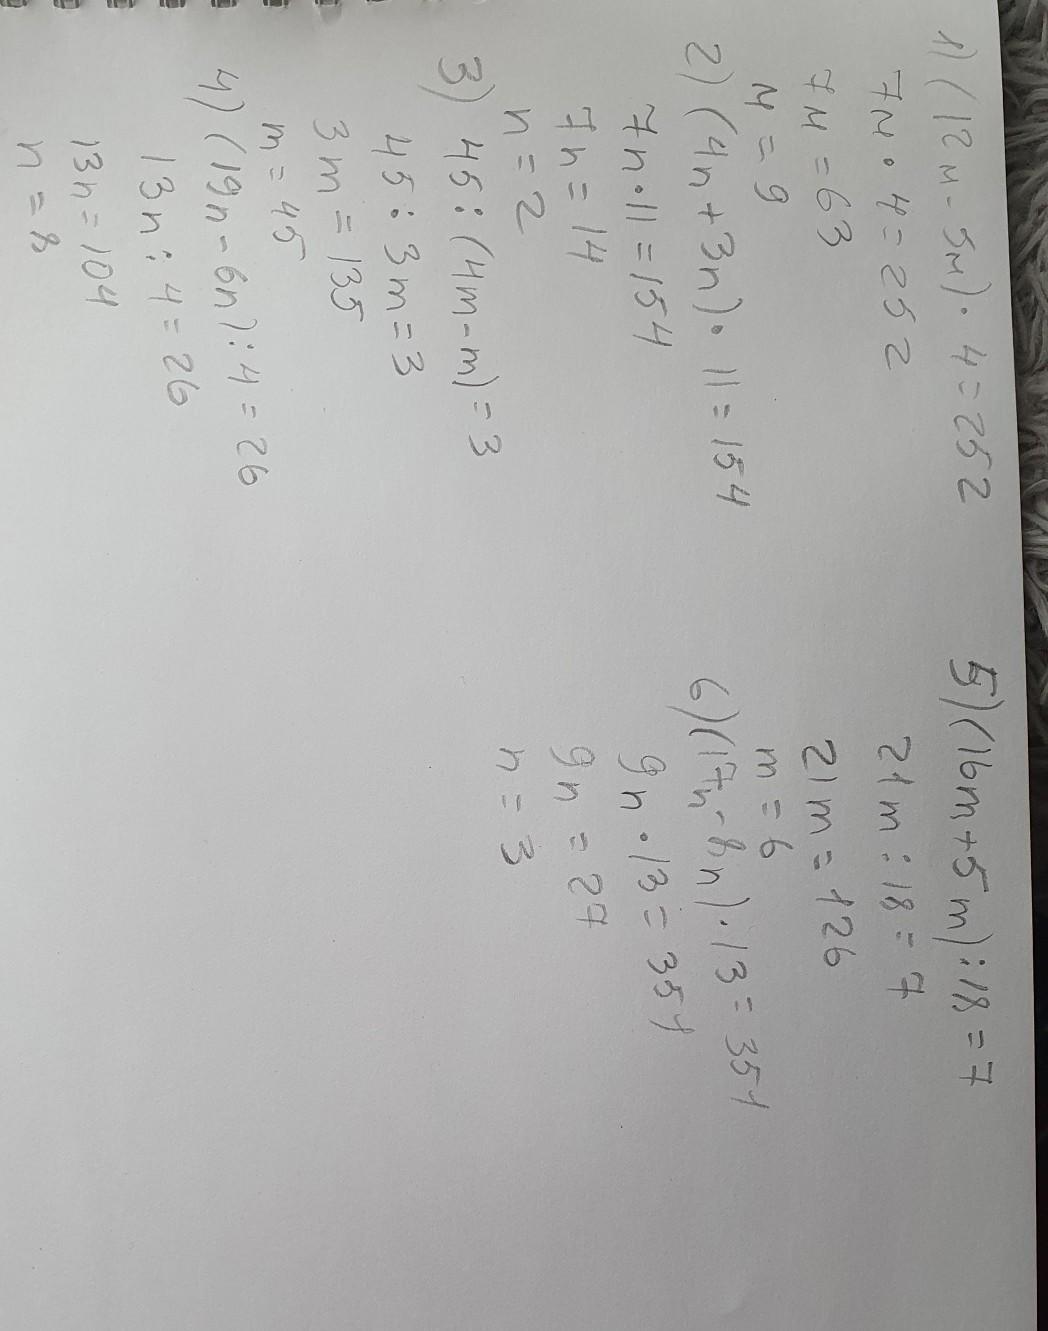 1) (12м - 5м) · 4 = 252
7м · 4 = 252
7м = 63
м = 9
2) (4n + 3n) · 11 = 154
7n · 11 = 154
7n = 14
n = 2
3) 45 : (4m - m) = 3
45 : 3m = 3
3m = 135
m = 45
4) (19n - 6n) : 4 = 26
13n : 4 = 26
13n = 104
n = 8
5) (16m + 5m) : 18 = 7
21m : 18 = 7
21m = 126
m = 6
6) (17n - 8n) · 13 = 351
9n · 13 = 351
9n = 27
n = 3